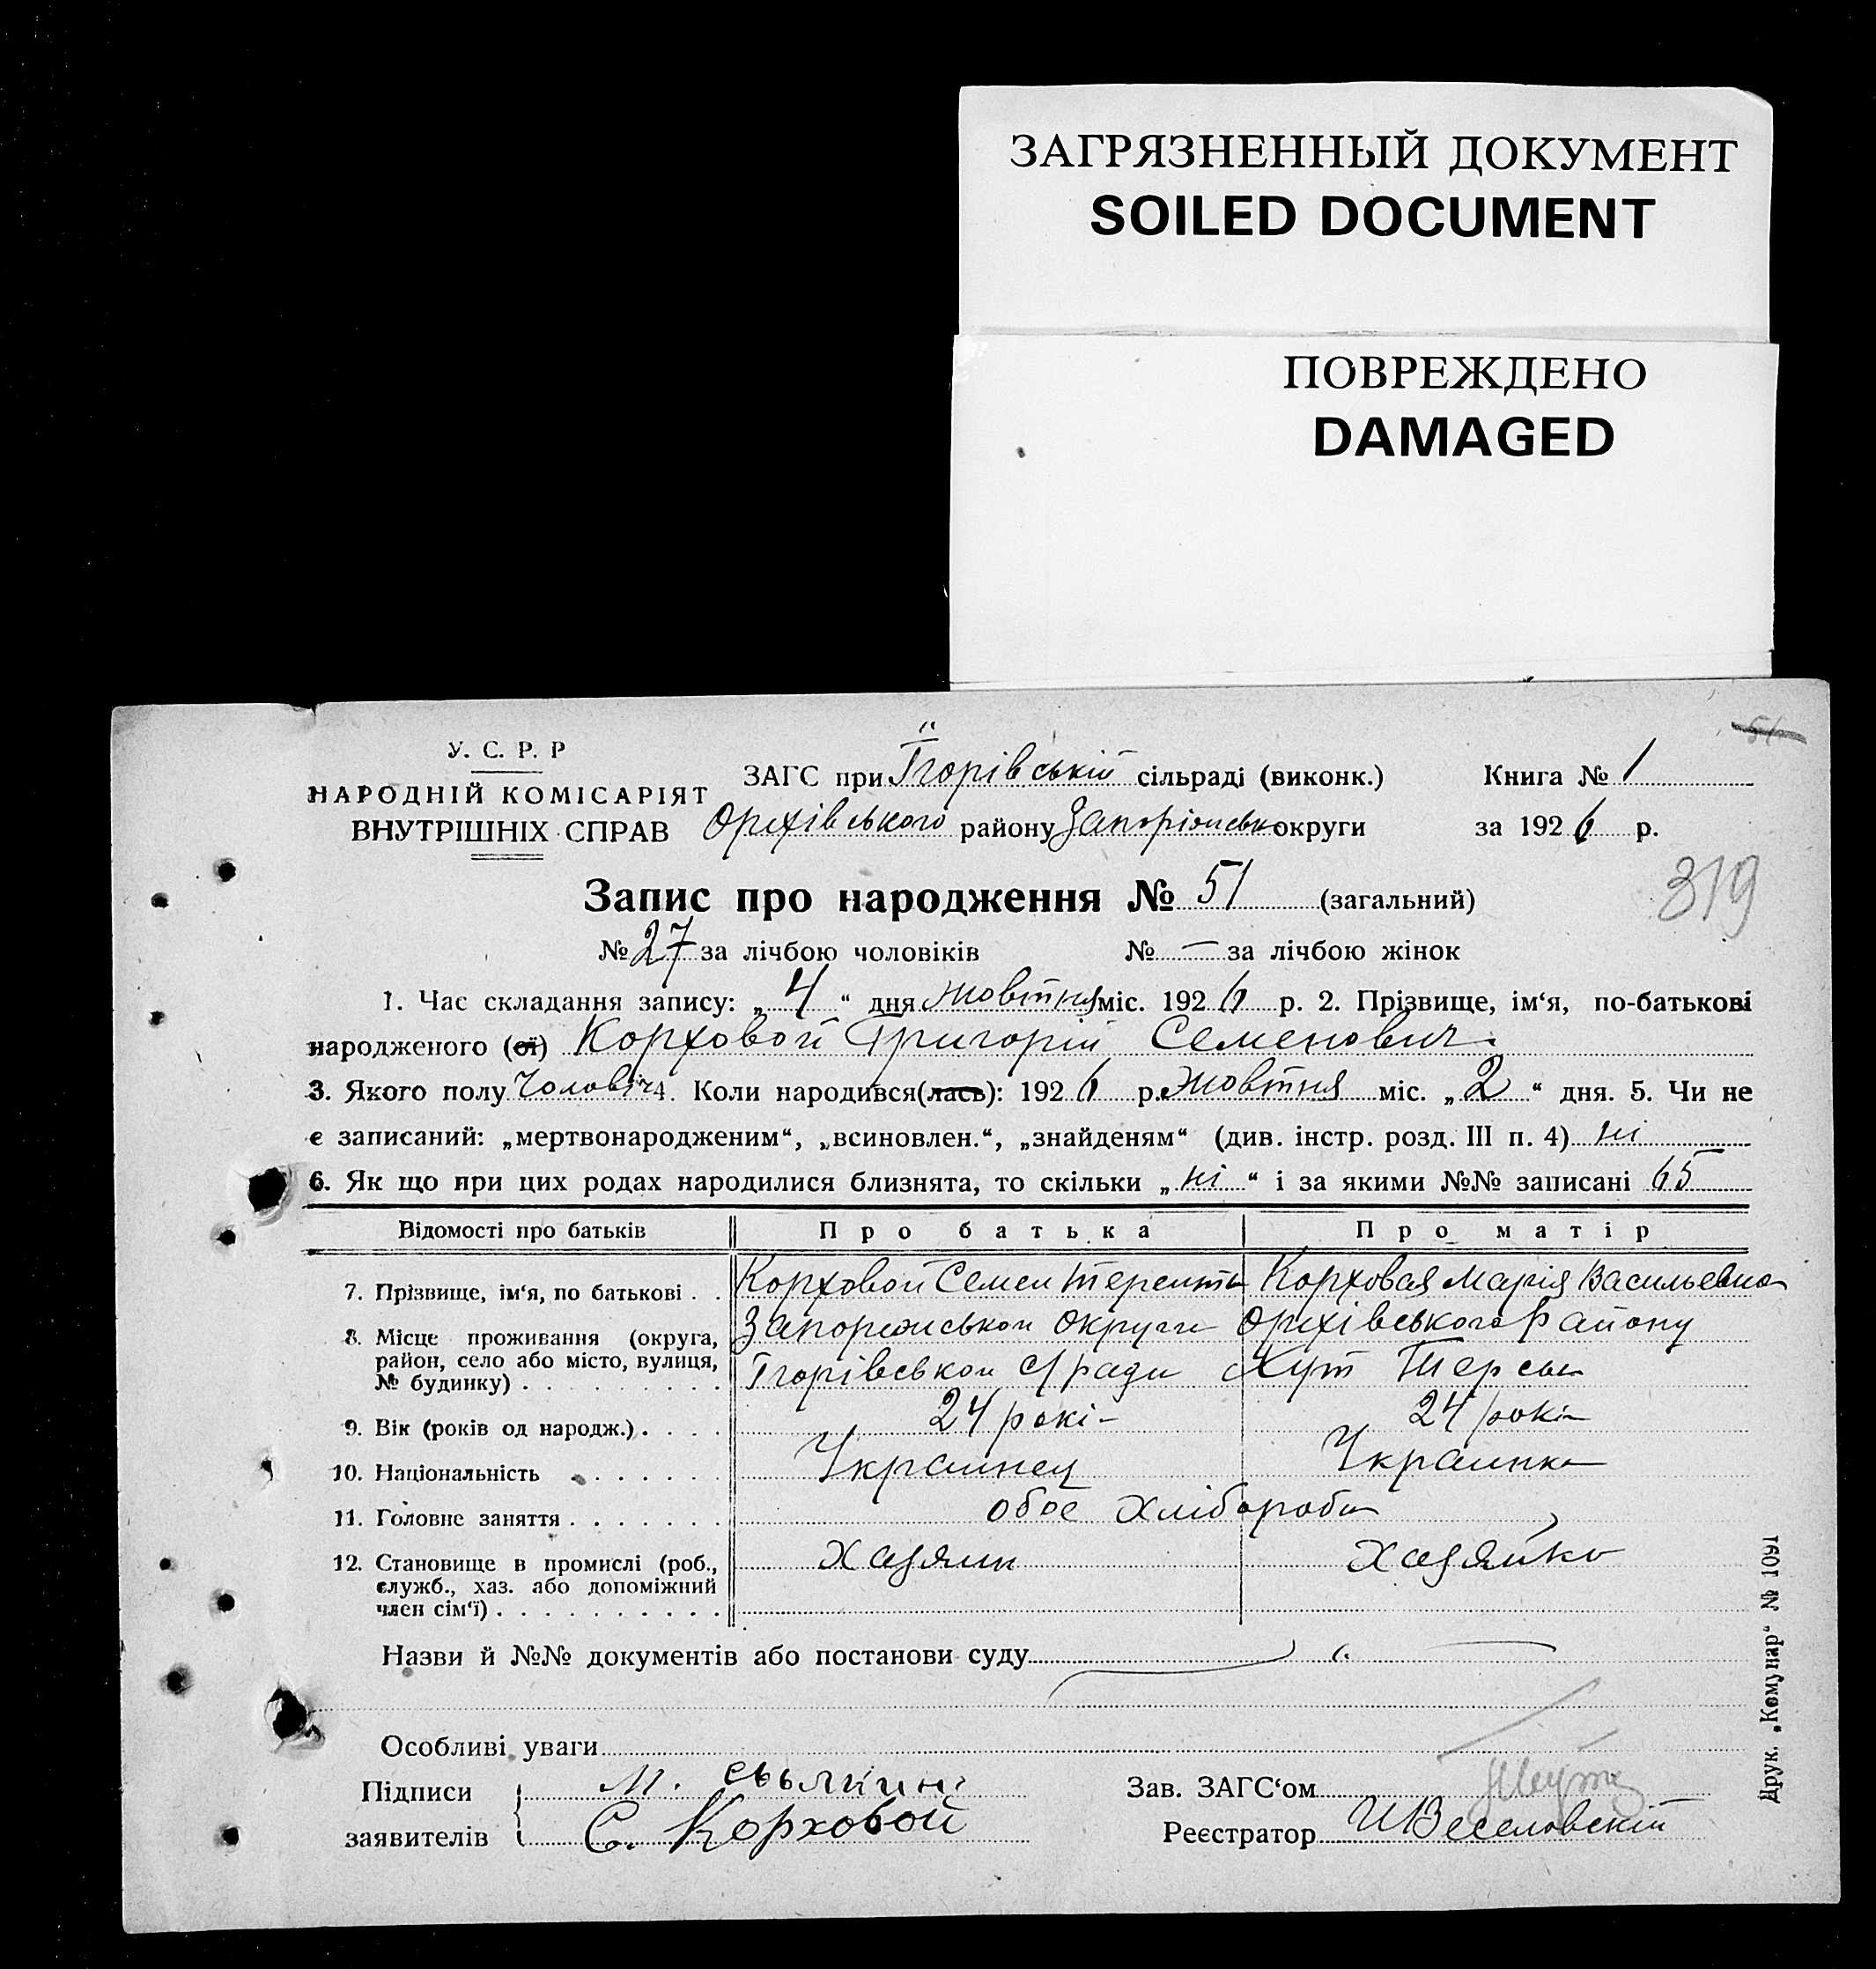 ЗАГРЯЗНЕННЫЙ ДОКУМЕНТ
SOILED DOCUMENT
ПОВРЕЖДЕНО
DAMAGED
51
У. С. Р. Р
НАРОДНІЙ КОМІСАРІЯТ
ВНУТРІШНІХ СПРАВ
ЗАГС при Ігорівській сільраді (виконк.) Книга № 1
Оріхівського району округи за 1926 р.
319
Запис про народження № 51 (загальний)
№ 27 за лічбою чоловіків № — за лічбою жінок
1. Час складання запису: „4“ дня жовтня міс. 1926 р. 2. Прізвище, ім‘я, по-батькові
народженого (ої) Корховой Григорій Семенович
3. Якого полу Чоловіч 4. Коли народився(лась): 1926 р. жовтня міс. „2“ дня. 5. Чи не
є записаний: „мертвонародженим“, „всиновлен.“, „знайденям“ (див. інстр. розд. III п. 4) ні
6. Як що при цих родах народилися близнята, то скільки „ні“ і за якими №№ записані 65
Відомості про батьків Про батька Про матір
7. Прізвище, ім‘я, по батькові . . Корховой Семен Корховая Марія Васильевна
8. Місце проживання (округа, район, село або місто, вулиця, № будинку) . . . . . . . . .
Округи Оріхівського Району
Ігорівськои С/ради Хут
9. Вік (років од народж.) . . . . 24 рокі 24 рокі
10. Національність . . . . . . Украинец Украинка
11. Головне заняття . . . . . . . обое Хлібороби
12. Становище в промислі (роб., служб., хаз. або допоміжний член сім‘ї) . . . . . . . . . . Хазяин Хазяйка
Назви й №№ документів або постанови суду
Особливі уваги
Підписи заявителів
М.
С. Корховой
Зав. ЗАГС‘ом
Реєстратор И Веселовскій
Друк. „Комунар“ № 1091